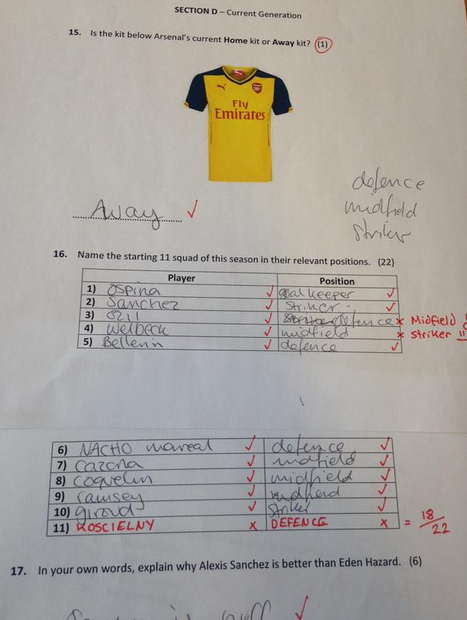 SECTION D – Current Generation
15. Is the kit below Arsenal's current Home kit or Away kit? (1)
Fly
Emirates
defence
midfield
striker
Away ✓
16. Name the starting 11 squad of this season in their relevant positions. (22)
Player Position
1) Ospina ✓ goalkeeper ✓
2) Sanchez ✓ Striker ✓
3) Ozil ✓ defence x Midfield
4) Welbeck ✓ midfield x striker !!
5) Bellerin ✓ defence ✓
6) NACHO monreal ✓ defence ✓
7) Cazorla ✓ midfield ✓
8) coquelin ✓ midfield ✓
9) ramsey ✓ midfield ✓
10) giroud ✓ Striker ✓
11) KOSCIELNY x DEFENCE x = 18/22
17. In your own words, explain why Alexis Sanchez is better than Eden Hazard. (6)
✓